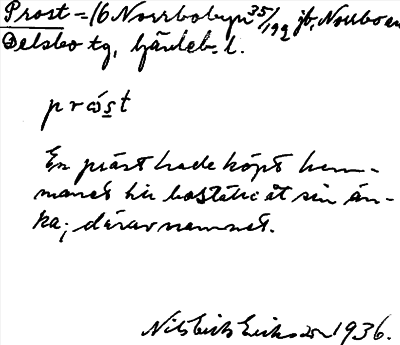 Prost = 16 Norrbobyn 35/192 jb, Norrbo en
Delsbo tg, Gävleb. l.
pråst
En präst hade köpt hem-
manet här bostäl åt sin än-
ka; därav namnet.
Nils Erik Eriksson 1936.